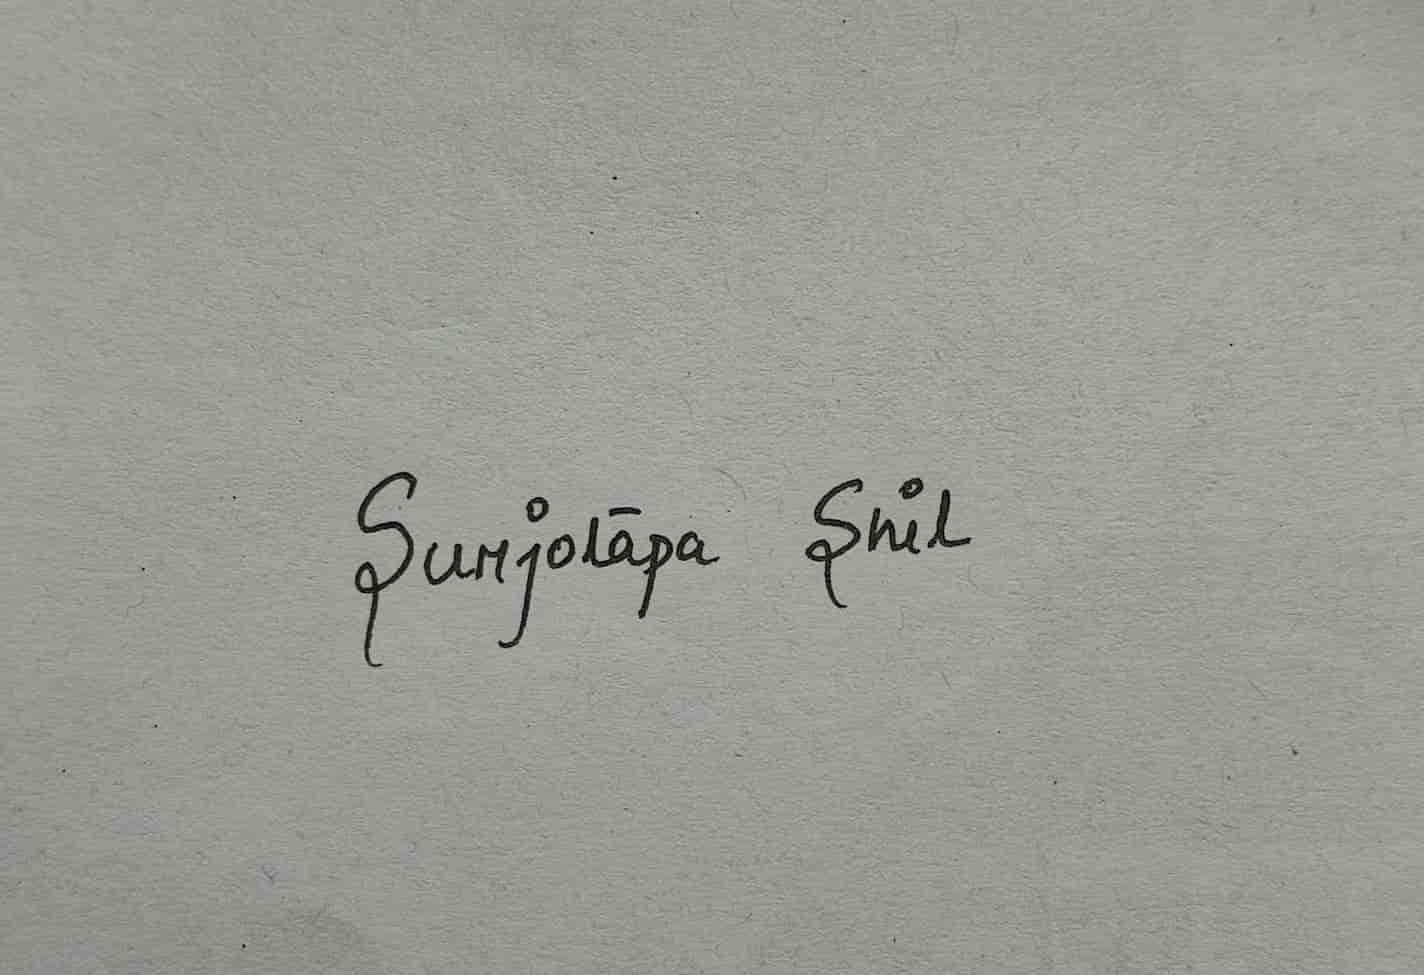 Surjotāpa Shil